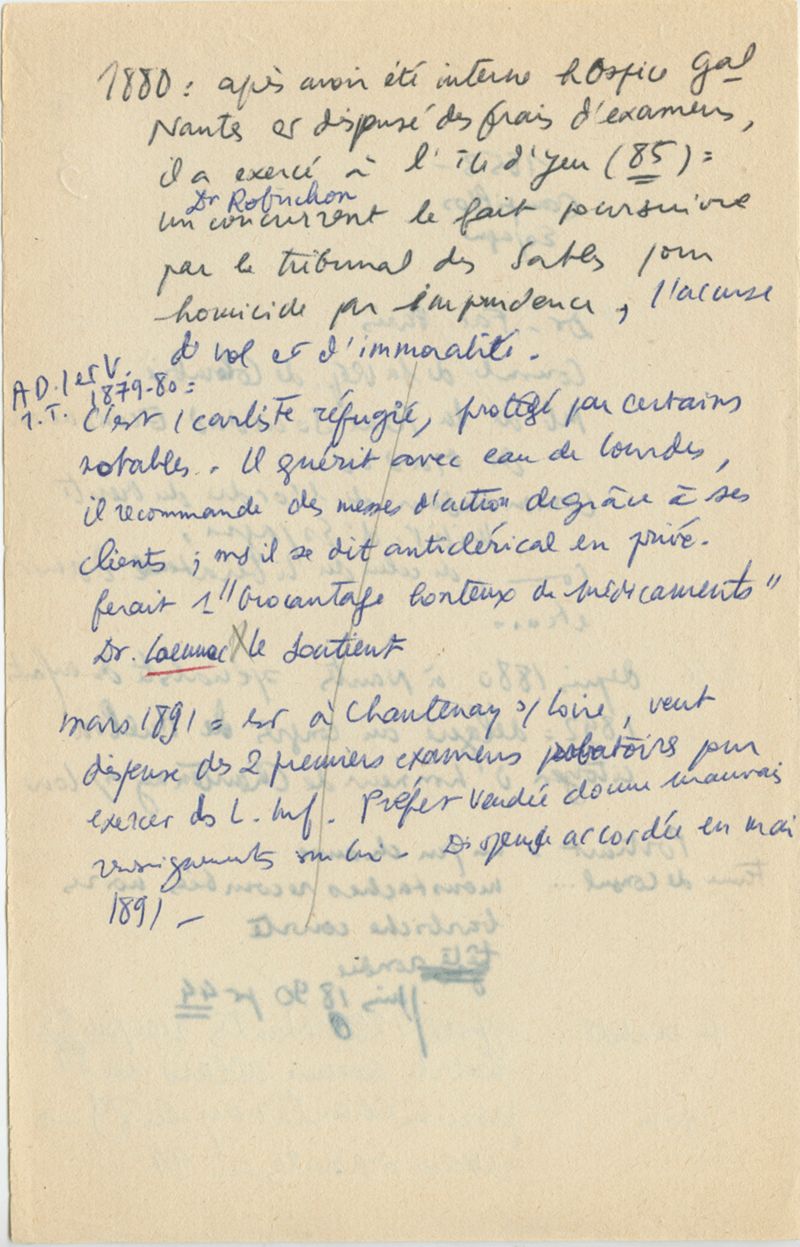 1880 : après avoir été interne hospice Gal
Nantes et dispensé des frais d'examens,
il a exercé à l'île d'Yeu (85) =
Dr Robuchon
un concurrent le fait poursuivre
par le tribunal des Sables pour
homicide par imprudence, l'accuse
de vol et d'immoralité.
A D. I et V.
1.T. 1879-80 =
C'est 1 carliste réfugié, protégé par certains
notables. Il guérit avec eau de Lourdes,
il recommande des messes d'action de grâce à ses
clients ; ms il se dit anticlérical en privé.
ferait 1 "brocantage honteux de médicaments"
Dr. Laennec le soutient
mars 1891 = est à Chantenay s/ Loire, veut
dispense des 2 premiers examens probatoires pour
exercer ds L. Inf. Préfet Vendée donne mauvais
renseignements sur lui - Dispense accordée en mai
1891 -